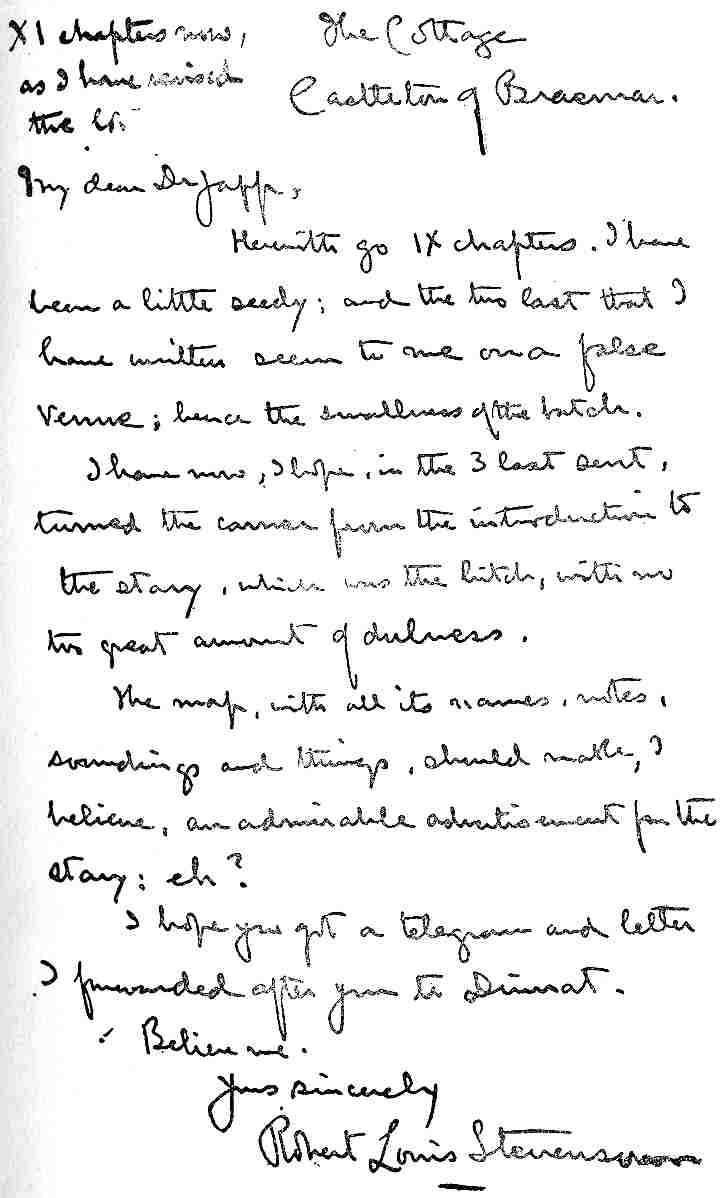 XI chapters now,
as I have revised
the
The Cottage
Castleton of Braemar.
My dear Dr Japp,
Herewith go IX chapters. I have
been a little seedy; and the two last that I
have written seem to me on a false
venue; hence the smallness of the batch.
I have now, I hope, in the 3 last sent,
turned the corner from the introduction to
the story, which was the hitch, with no
too great amount of dulness.
The map, with all its names, notes,
soundings and things, should make, I
believe, an admirable advertisement for the
story: eh?
I hope you got a telegram and letter
I forwarded after you to Dinnat.
Believe me.
Yours sincerely
Robert Louis Stevenson